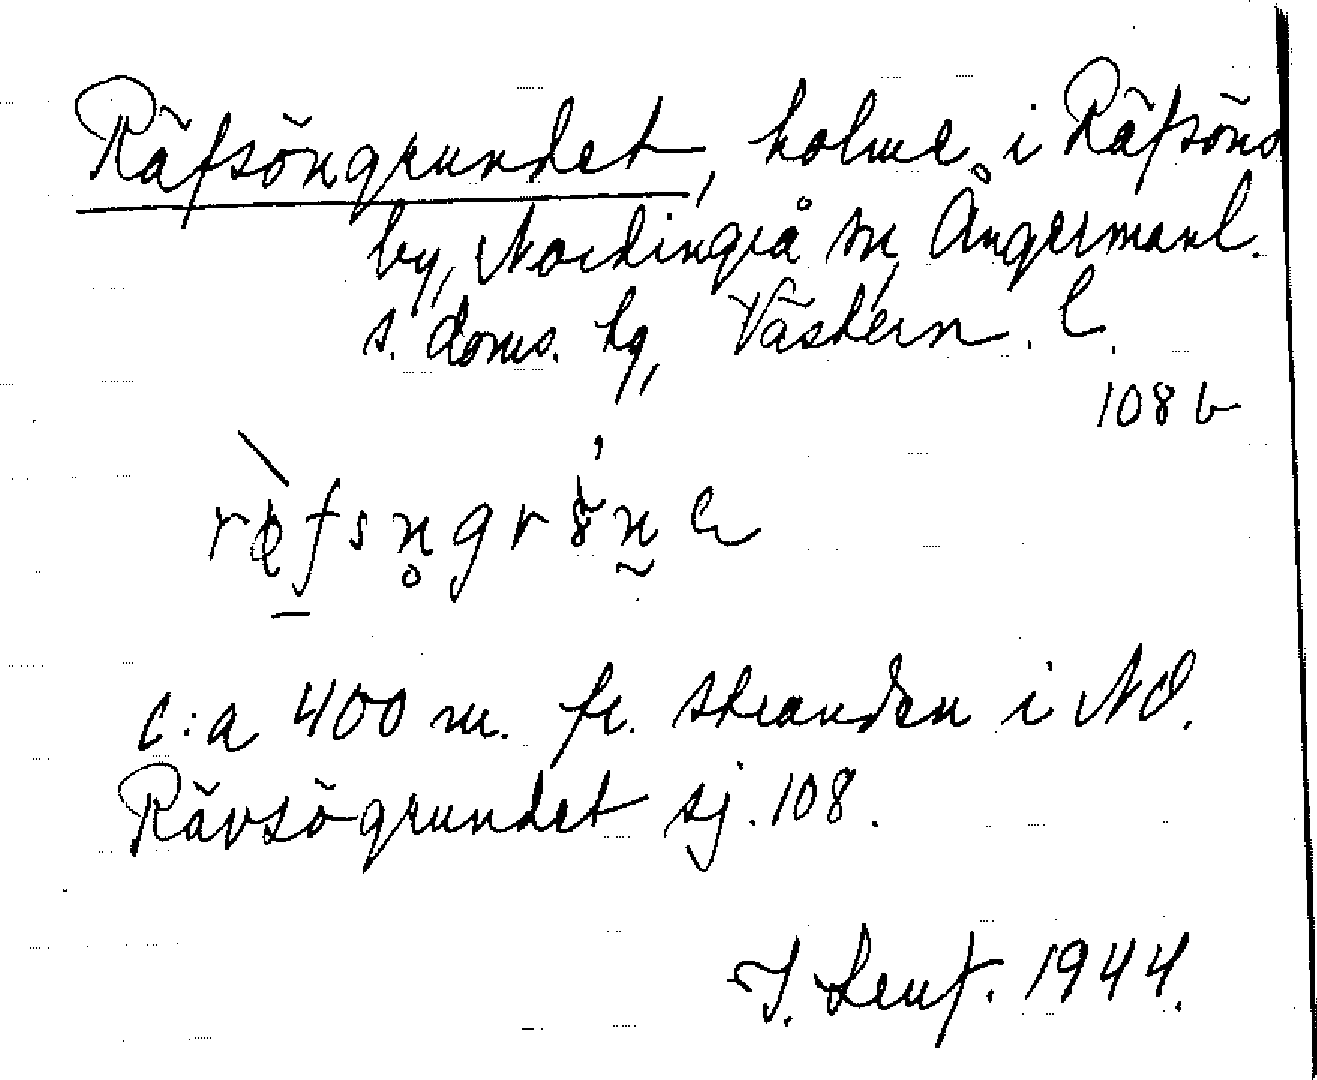 Räfsöngrundet, holme i Räfsöns
by, Nordingrå sn, Ångermanl.
s. doms. hg, Västern. l.
108 b
c:a 400 m. fr. stranden i NO.
Rävsögrundet sj. 108.
1944.